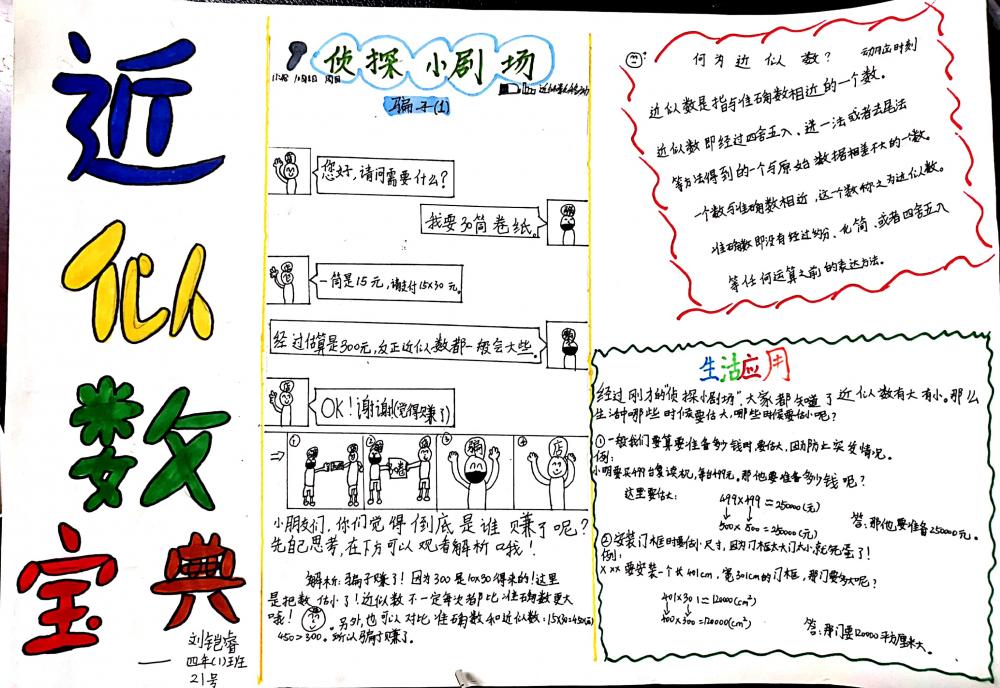 近似数宝典
刘铠睿
四年(1)班
21号
侦探小剧场
骗子(1)
店
您好，请问需要什么？
骗
我要30筒卷纸。
店
一筒是15元，请支付15×30元。
骗
经过估算是300元，反正近似数都一般会大些。
店
OK！谢谢(觉得赚了)
① ② ③ ④
骗 店
小朋友们，你们觉得到底是谁赚了呢？
先自己思考，在下方可以观看解析哦！
解析：骗子赚了！因为300是10×30得来的！这里
是把数估小了！近似数不一定每次都比准确数更大
哦！另外，也可以对比准确数和近似数：15×30=450(元)
450>300。所以骗子赚了。
何为近似数？
近似数是指与准确数相近的一个数。
近似数即经过四舍五入、进一法或者去尾法
等方法得到的一个与原始数据相差不大的一个数。
一个数与准确数相近，这个数称之为近似数。
准确数即没有经过约分、化简、或者四舍五入
等任何运算之前的表达方法。
生活应用
经过刚才的"侦探小剧场"，大家都知道了近似数有大有小。那么
生活中哪些时候要估大，哪些时候要估小呢？
①一般我们要算要准备多少钱时要估大，因为防止突发情况。
例：
小明要买499台复读机，每台499元。那他要准备多少钱呢？
这里要估大：
499×499≈250000(元)
500×500=250000(元)
答：那他要准备250000元。
②安装门框时要估小尺寸，因为门框太大门太小就完蛋了！
例：
×××要安装一个长401cm，宽301cm的门框，那门要多大呢？
401×301≈120000(cm²)
400×300=120000(cm²)
答：那门要120000平方厘米大。